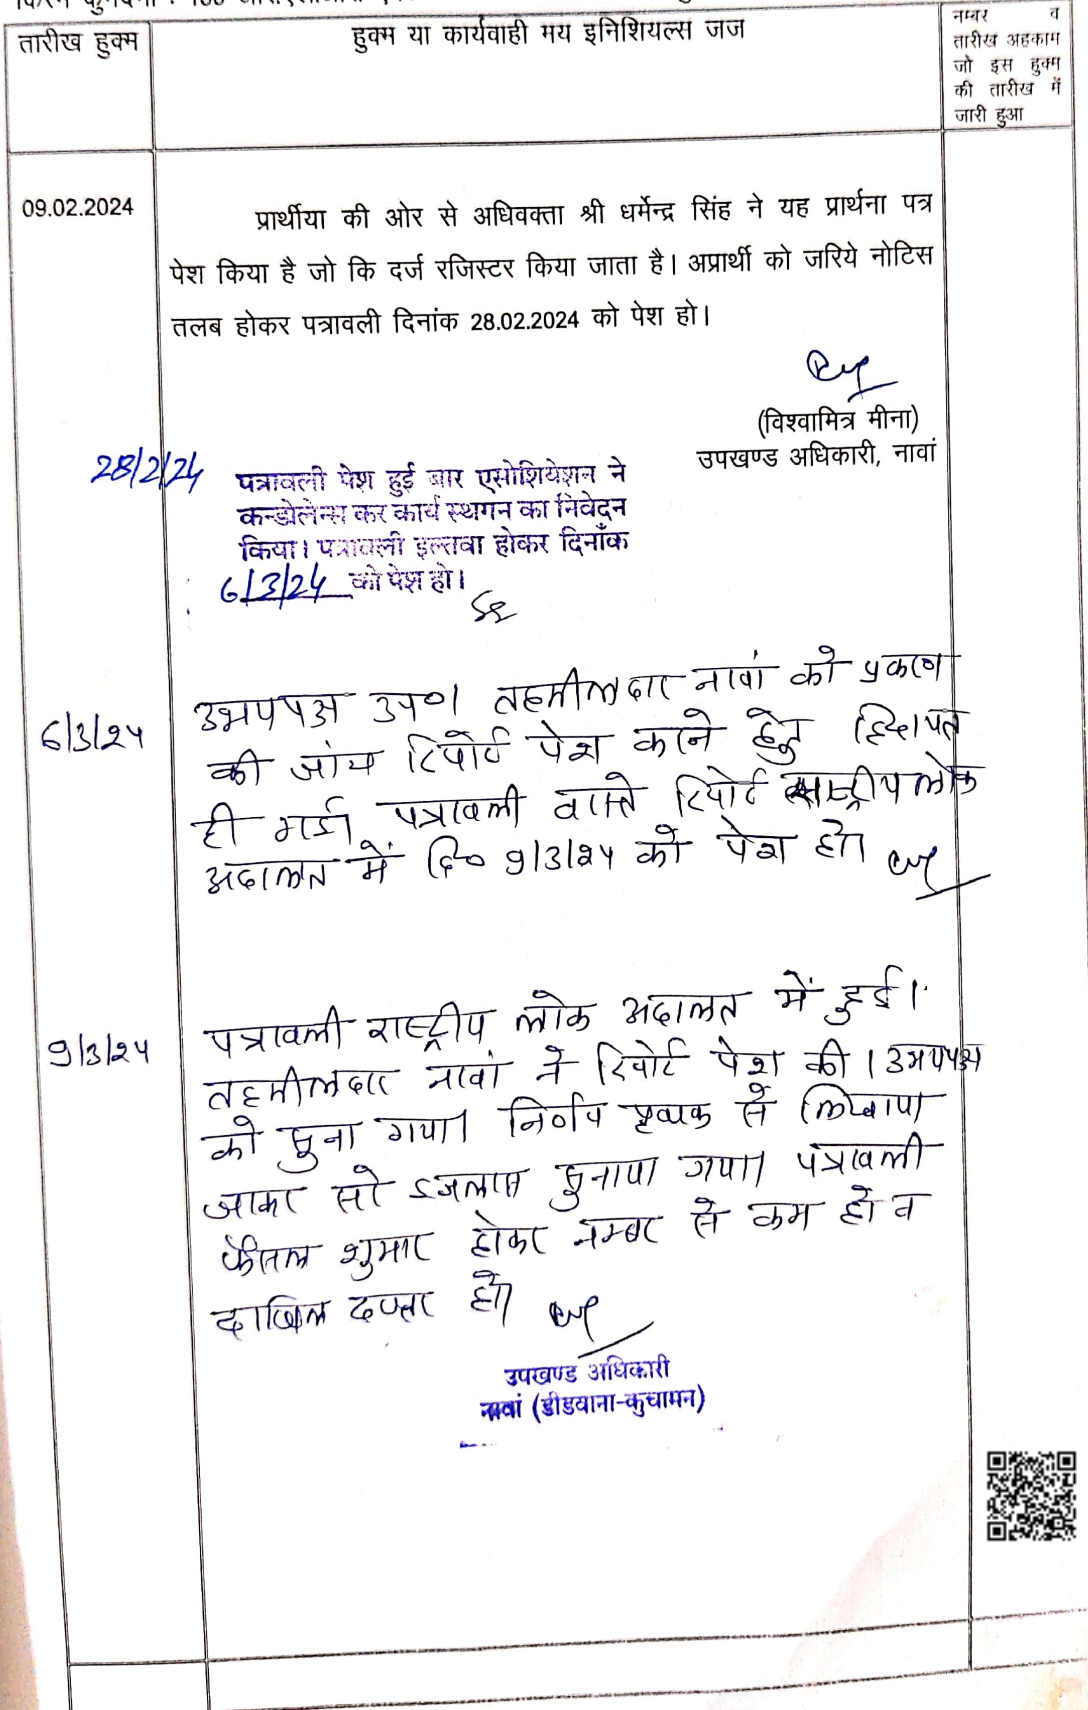 तारीख हुक्म
हुक्म या कार्यवाही मय इनिशियल्स जज
नम्बर व
तारीख अहकाम
जो इस हुक्म
की तारीख में
जारी हुआ
09.02.2024
प्रार्थीया की ओर से अधिवक्ता श्री धर्मेन्द्र सिंह ने यह प्रार्थना पत्र
पेश किया है जो कि दर्ज रजिस्टर किया जाता है। अप्रार्थी को जरिये नोटिस
तलब होकर पत्रावली दिनांक 28.02.2024 को पेश हो।
(विश्वामित्र मीना)
उपखण्ड अधिकारी, नावां
28/2/24
पत्रावली पेश हुई बार एसोशियेशन ने
कन्डोलेन्स कर कार्य स्थगन का निवेदन
किया। पत्रावली इल्तवा होकर दिनाँक
6/3/24 को पेश हो।
6/3/24
उभयपक्ष उप०। तहसीलदार नावां को प्रकरण
की जांच रिपोर्ट पेश करने हेतु हिदायत
दी गई। पत्रावली वास्ते रिपोर्ट राष्ट्रीय लोक
अदालत में दि० 9/3/24 को पेश हो।
9/3/24
पत्रावली राष्ट्रीय लोक अदालत में हुई।
तहसीलदार नावां ने रिपोर्ट पेश की। उभयपक्ष
को सुना गया। निर्णय पृथक से लिखाया
जाकर सरे इजलास सुनाया गया। पत्रावली
फैसल शुमार होकर नम्बर से कम हो व
दाखिल दफ्तर हो।
उपखण्ड अधिकारी
नावां (डीडवाना-कुचामन)